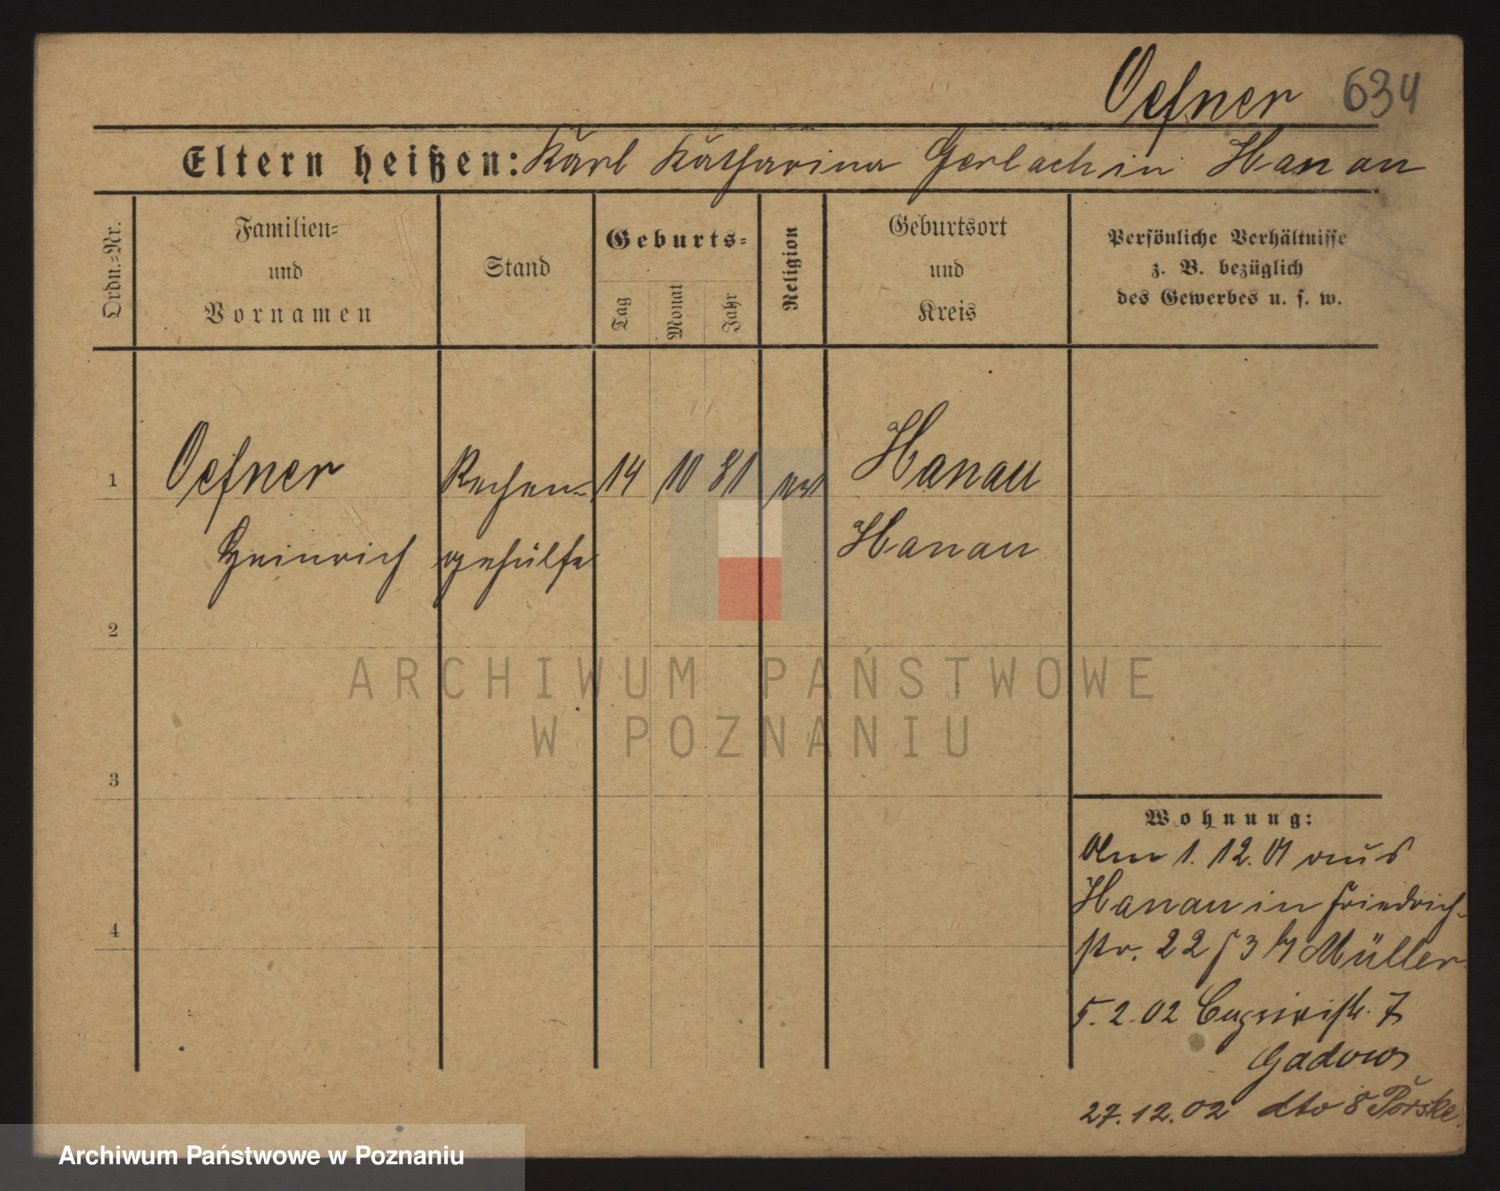 Oefner 634
Eltern heißen: Karl Katharina Gerlach in Hanau
Ordn.=Nr.
Familien=
und
Vornamen
Stand
Geburts=
Tag
Monat
Jahr
Religion
Geburtsort
und
Kreis
Persönliche Verhältnisse
z. B. bezüglich
des Gewerbes u. s. w.
1 Oefner Rechen- 14 10 81 ev Hanau
Heinrich gehülfe Hanau
2
3
4
Wohnung:
Am 1. 12. 01 aus
Hanau in Friedrich-
str. 22 Müller
5. 2. 02 7
Gadow
27. 12. 02 dto 8
ARCHIWUM PAŃSTWOWE
W POZNANIU
Archiwum Państwowe w Poznaniu